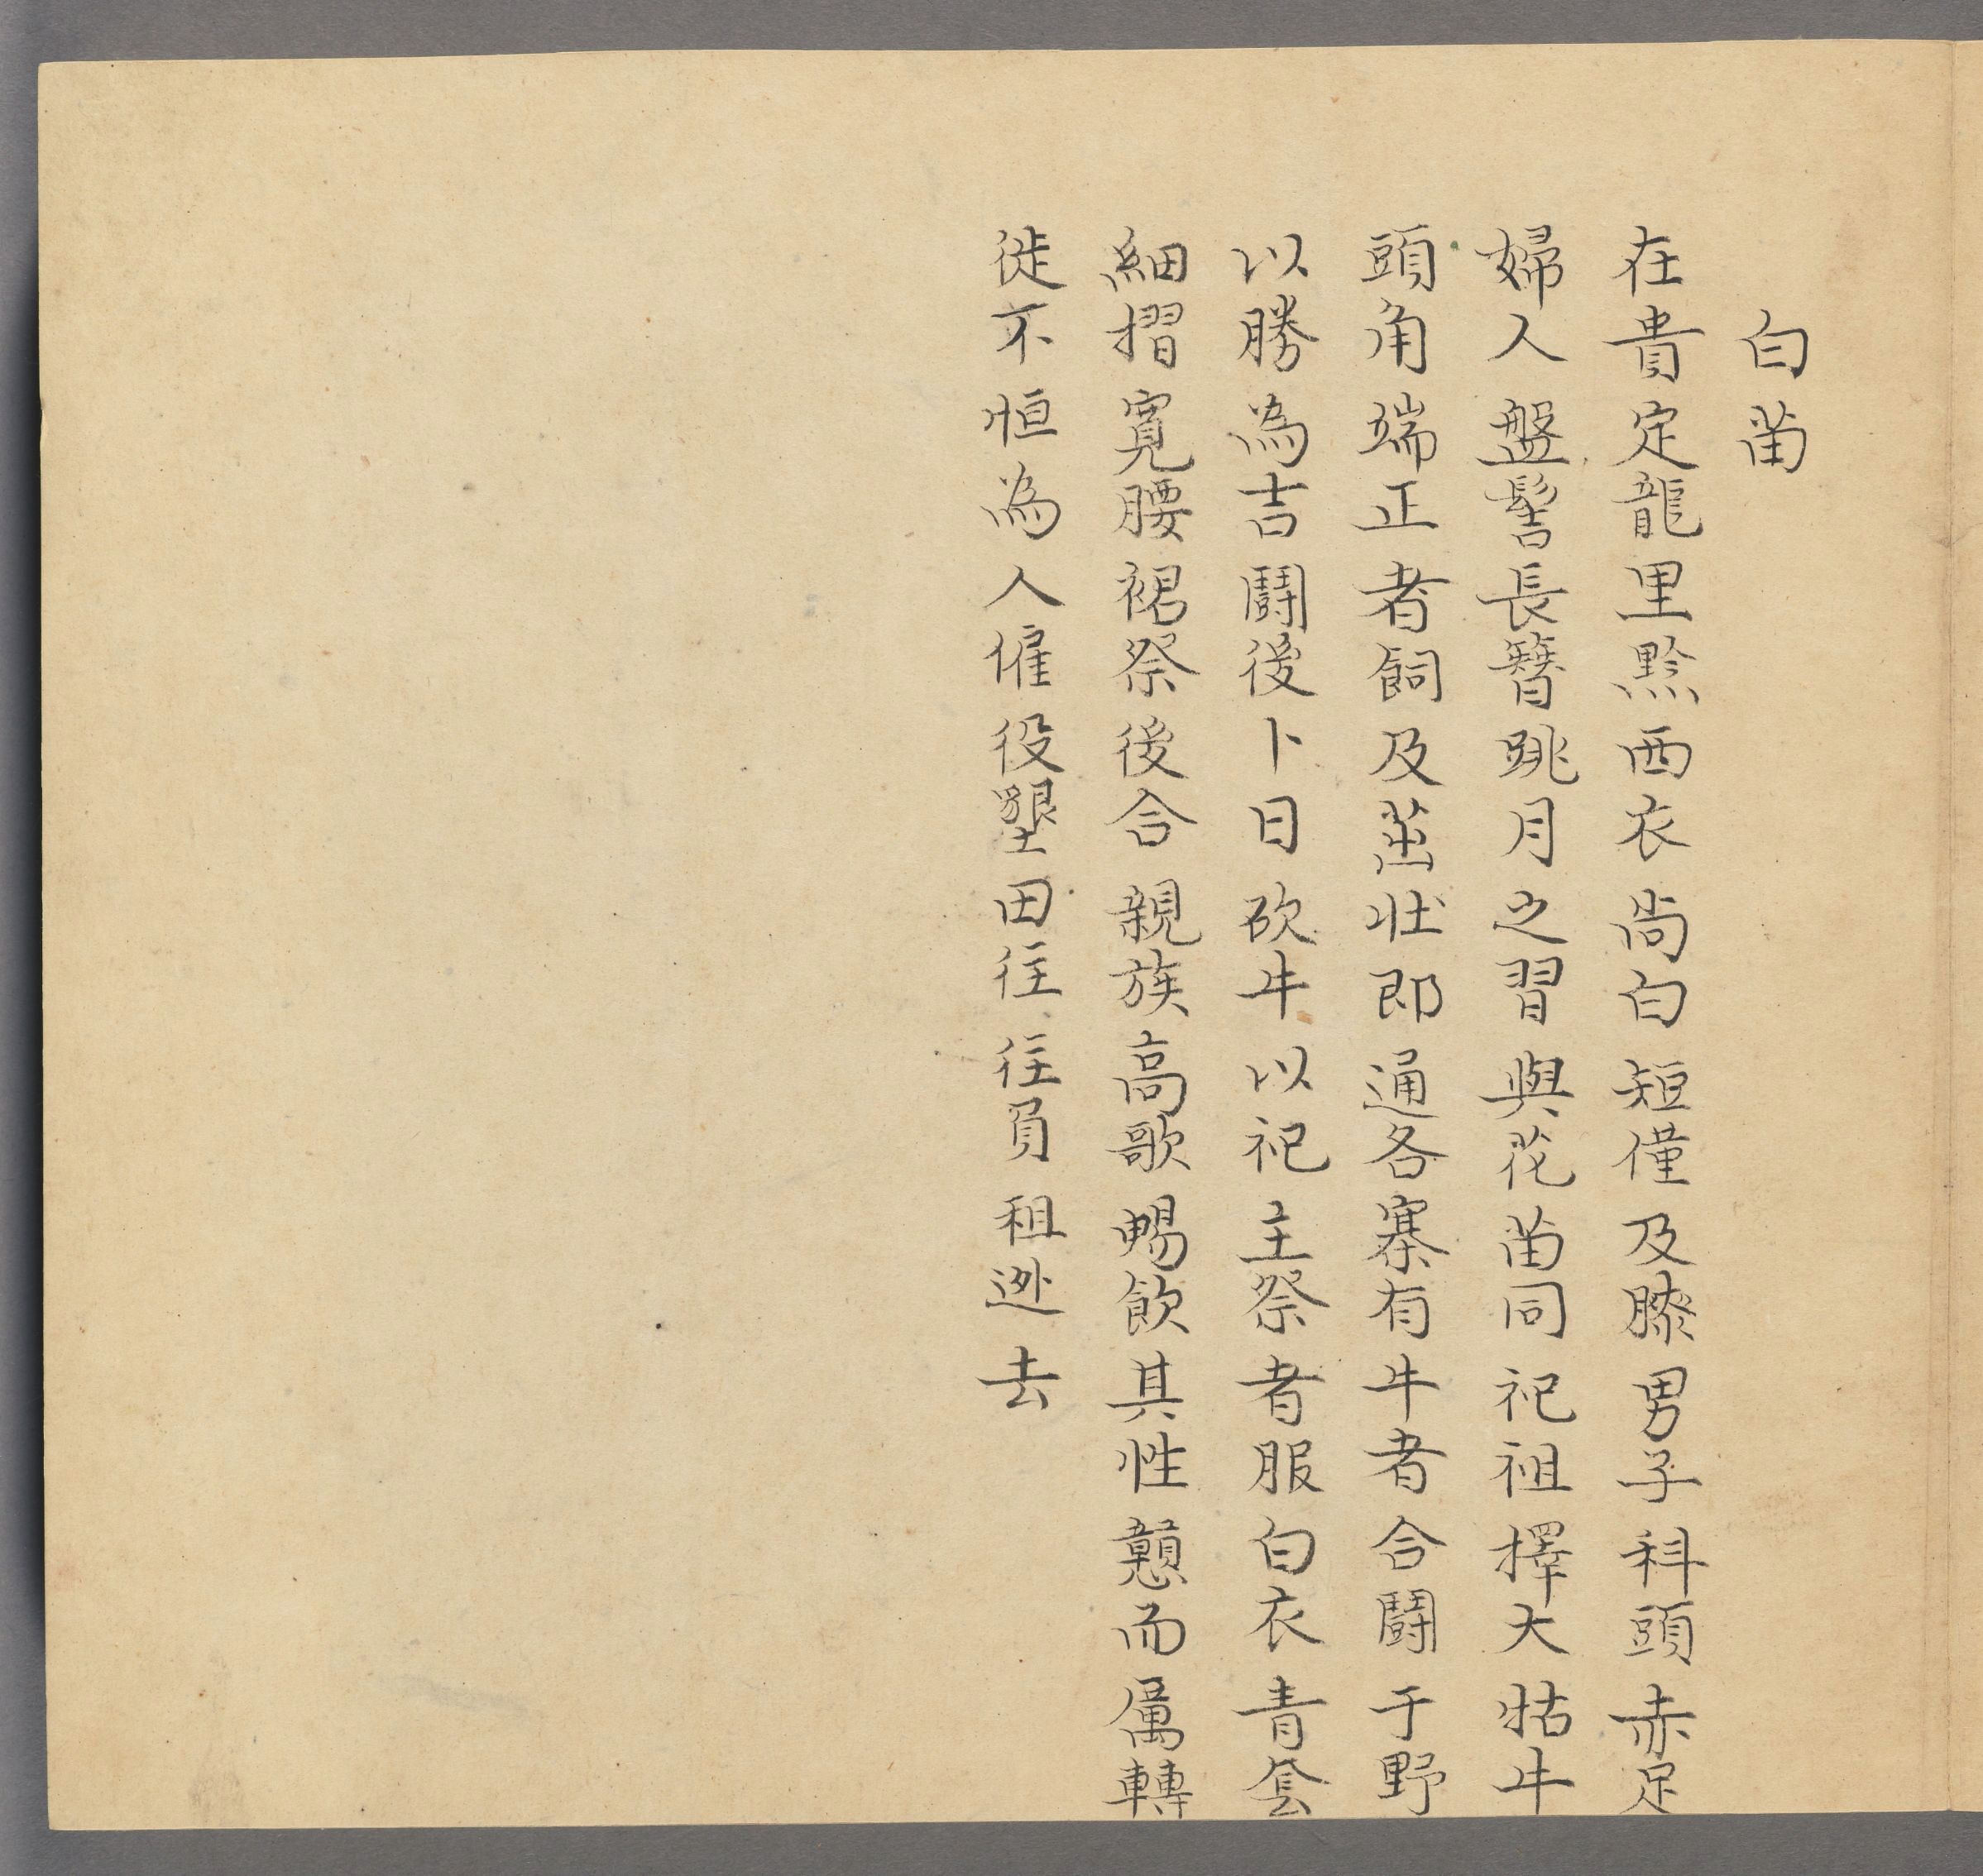 白苗
在貴定龍里黔西衣尚白短僅及膝男子科頭赤足
婦人盤髻長簪跳月之習與花苗同祀祖擇大牯牛
頭角端正者飼及茁壯即通各寨有牛者合鬪于野
以勝為吉鬪後卜日砍牛以祀主祭者服白衣青套
細摺寬腰裙祭後合親族高歌暢飲其性戇而厲轉
徙不恒為人僱役墾田往往負租逃去